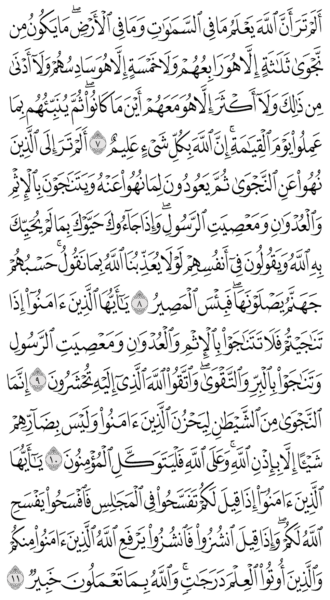 أَلَمْ تَرَ أَنَّ ٱللَّهَ يَعْلَمُ مَا فِى ٱلسَّمَٰوَٰتِ وَمَا فِى ٱلْأَرْضِ ۖ مَا يَكُونُ مِن
نَّجْوَىٰ ثَلَٰثَةٍ إِلَّا هُوَ رَابِعُهُمْ وَلَا خَمْسَةٍ إِلَّا هُوَ سَادِسُهُمْ وَلَآ أَدْنَىٰ
مِن ذَٰلِكَ وَلَآ أَكْثَرَ إِلَّا هُوَ مَعَهُمْ أَيْنَ مَا كَانُوا۟ ۖ ثُمَّ يُنَبِّئُهُم بِمَا
عَمِلُوا۟ يَوْمَ ٱلْقِيَٰمَةِ ۚ إِنَّ ٱللَّهَ بِكُلِّ شَىْءٍ عَلِيمٌ ٧ أَلَمْ تَرَ إِلَى ٱلَّذِينَ
نُهُوا۟ عَنِ ٱلنَّجْوَىٰ ثُمَّ يَعُودُونَ لِمَا نُهُوا۟ عَنْهُ وَيَتَنَٰجَوْنَ بِٱلْإِثْمِ
وَٱلْعُدْوَٰنِ وَمَعْصِيَتِ ٱلرَّسُولِ ۖ وَإِذَا جَآءُوكَ حَيَّوْكَ بِمَا لَمْ يُحَيِّكَ
بِهِ ٱللَّهُ وَيَقُولُونَ فِىٓ أَنفُسِهِمْ لَوْلَا يُعَذِّبُنَا ٱللَّهُ بِمَا نَقُولُ ۚ حَسْبُهُمْ
جَهَنَّمُ يَصْلَوْنَهَا ۖ فَبِئْسَ ٱلْمَصِيرُ ٨ يَٰٓأَيُّهَا ٱلَّذِينَ ءَامَنُوٓا۟ إِذَا
تَنَٰجَيْتُمْ فَلَا تَتَنَٰجَوْا۟ بِٱلْإِثْمِ وَٱلْعُدْوَٰنِ وَمَعْصِيَتِ ٱلرَّسُولِ
وَتَنَٰجَوْا۟ بِٱلْبِرِّ وَٱلتَّقْوَىٰ ۖ وَٱتَّقُوا۟ ٱللَّهَ ٱلَّذِىٓ إِلَيْهِ تُحْشَرُونَ ٩ إِنَّمَا
ٱلنَّجْوَىٰ مِنَ ٱلشَّيْطَٰنِ لِيَحْزُنَ ٱلَّذِينَ ءَامَنُوا۟ وَلَيْسَ بِضَآرِّهِمْ
شَيْـًٔا إِلَّا بِإِذْنِ ٱللَّهِ ۚ وَعَلَى ٱللَّهِ فَلْيَتَوَكَّلِ ٱلْمُؤْمِنُونَ ١٠ يَٰٓأَيُّهَا
ٱلَّذِينَ ءَامَنُوٓا۟ إِذَا قِيلَ لَكُمْ تَفَسَّحُوا۟ فِى ٱلْمَجَٰلِسِ فَٱفْسَحُوا۟ يَفْسَحِ
ٱللَّهُ لَكُمْ ۖ وَإِذَا قِيلَ ٱنشُزُوا۟ فَٱنشُزُوا۟ يَرْفَعِ ٱللَّهُ ٱلَّذِينَ ءَامَنُوا۟ مِنكُمْ
وَٱلَّذِينَ أُوتُوا۟ ٱلْعِلْمَ دَرَجَٰتٍ ۚ وَٱللَّهُ بِمَا تَعْمَلُونَ خَبِيرٌ ١١